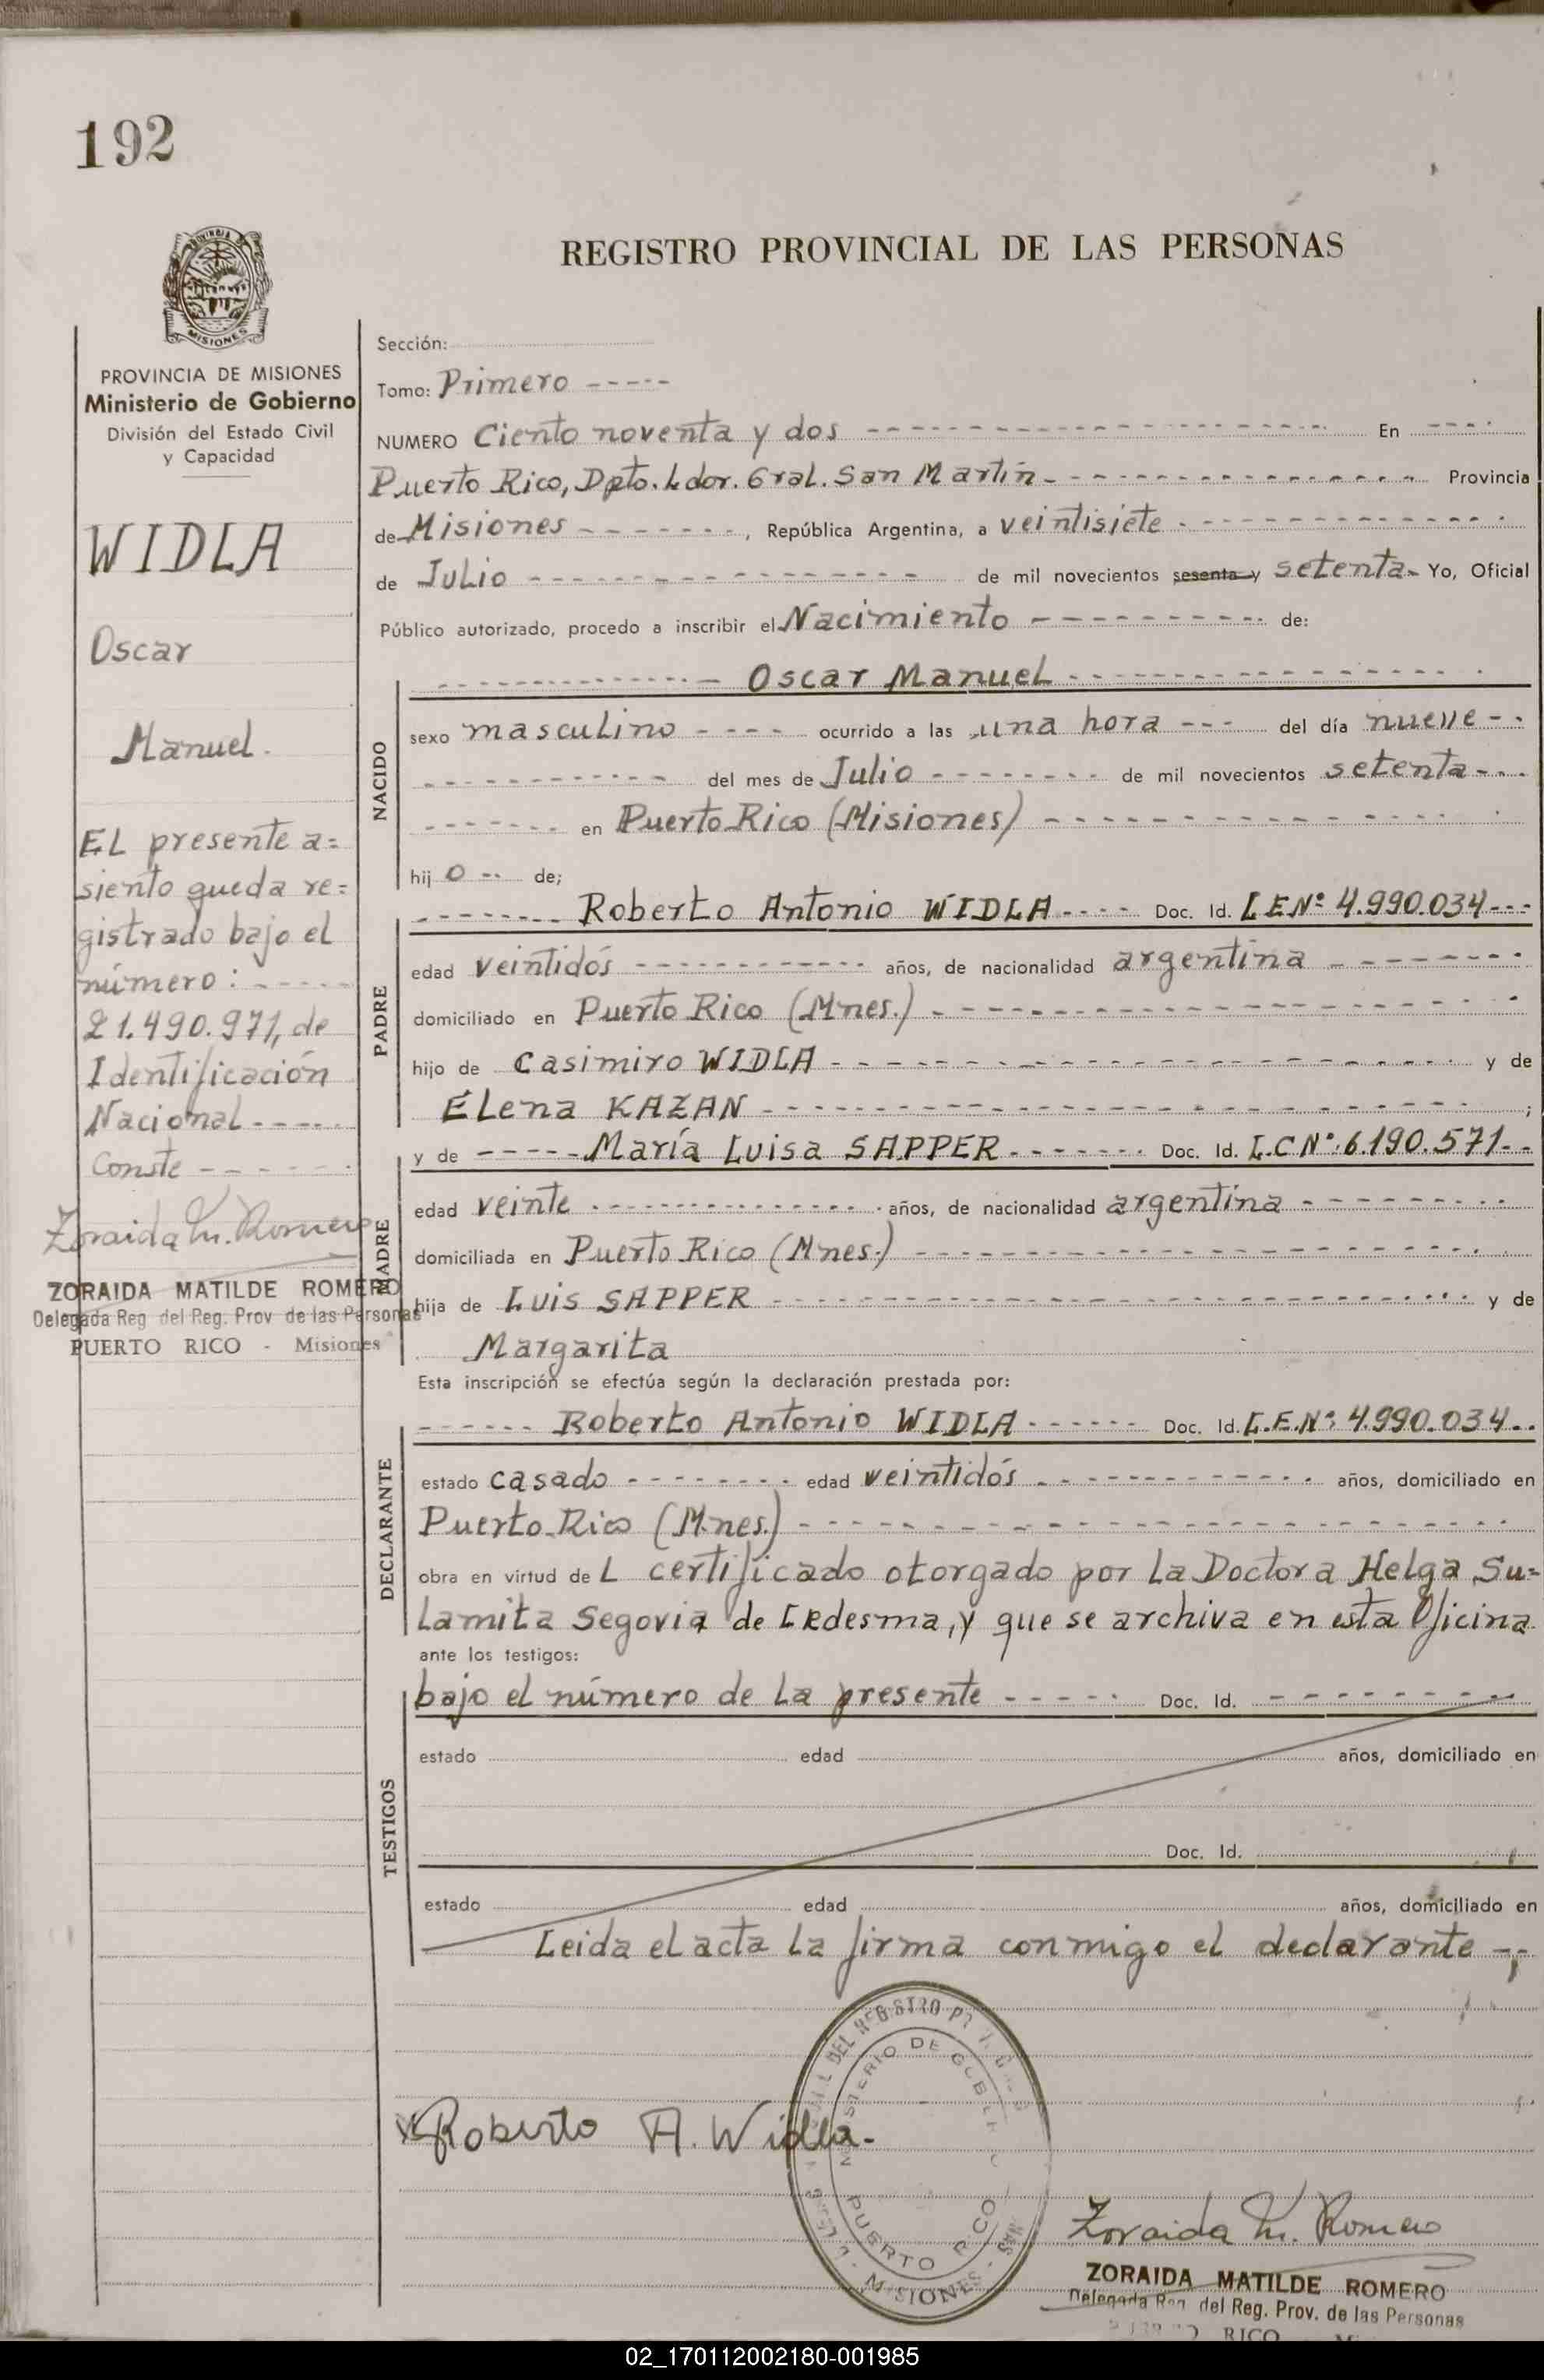 192
REGISTRO PROVINCIAL DE LAS PERSONAS
MISIONES
PROVINCIA DE MISIONES
Ministerio de Gobierno
División del Estado Civil
y Capacidad
WIDLA
Oscar
Manuel.
EL presente a=
siento queda re=
gistrado bajo el
número: - - - - -
21.490.971, de
Identificación
Nacional - - - - -
Conste - - - - - -
Zoraida M. Romero
ZORAIDA MATILDE ROMERO
Delegada Reg del Reg. Prov de las Personas
PUERTO RICO - Misiones
Sección:
Tomo: Primero - - - - -
NUMERO Ciento noventa y dos - - - - - En - - - -
Puerto Rico, Dpto. Ldor. Gral. San Martín - - - - - Provincia
de Misiones - - - - - , República Argentina, a veintisiete - - - - -
de Julio - - - - - de mil novecientos sesenta y setenta - Yo, Oficial
Público autorizado, procedo a inscribir el Nacimiento - - - - - de:
NACIDO
- - - - - Oscar Manuel - - - - -
sexo masculino - - - - ocurrido a las una hora - - - del día nueve - -
- - - - - del mes de Julio - - - - - de mil novecientos setenta - - -
- - - - - en Puerto Rico (Misiones) - - - - -
hij o - - de;
PADRE
- - - - - Roberto Antonio WIDLA - - - - Doc. Id. L.E.Nº 4.990.034 - - -
edad veintidós - - - - - años, de nacionalidad argentina - - - - -
domiciliado en Puerto Rico (Mnes.) - - - - -
hijo de Casimiro WIDLA - - - - - y de
Elena KAZAN - - - - - ;
MADRE
y de - - - - - María Luisa SAPPER - - - - - Doc. Id. L.C Nº: 6.190.571 - -
edad veinte - - - - - años, de nacionalidad argentina - - - - -
domiciliada en Puerto Rico (Mnes.) - - - - -
hija de Luis SAPPER - - - - - y de
Margarita
Esta inscripción se efectúa según la declaración prestada por:
DECLARANTE
- - - - - Roberto Antonio WIDLA - - - - - Doc. Id. L.E.Nº: 4.990.034 - -
estado casado - - - - - edad veintidós - - - - - años, domiciliado en
Puerto Rico (Mnes.) - - - - -
obra en virtud de L certificado otorgado por La Doctora Helga Su=
Lamita Segovia de Ledesma, y que se archiva en esta Oficina
ante los testigos:
TESTIGOS
bajo el número de La presente - - - - - Doc. Id. - - - - -
estado edad años, domiciliado en
Doc. Id.
estado edad años, domiciliado en
Leida el acta La firma conmigo el declarante - , -
DEL REGISTRO
MINISTERIO DE
PUERTO RICO
MISIONES
Roberto A. Widla.
Zoraida M. Romero
ZORAIDA MATILDE ROMERO
Delegada Reg. del Reg. Prov. de las Personas
RICO
02_170112002180-001985